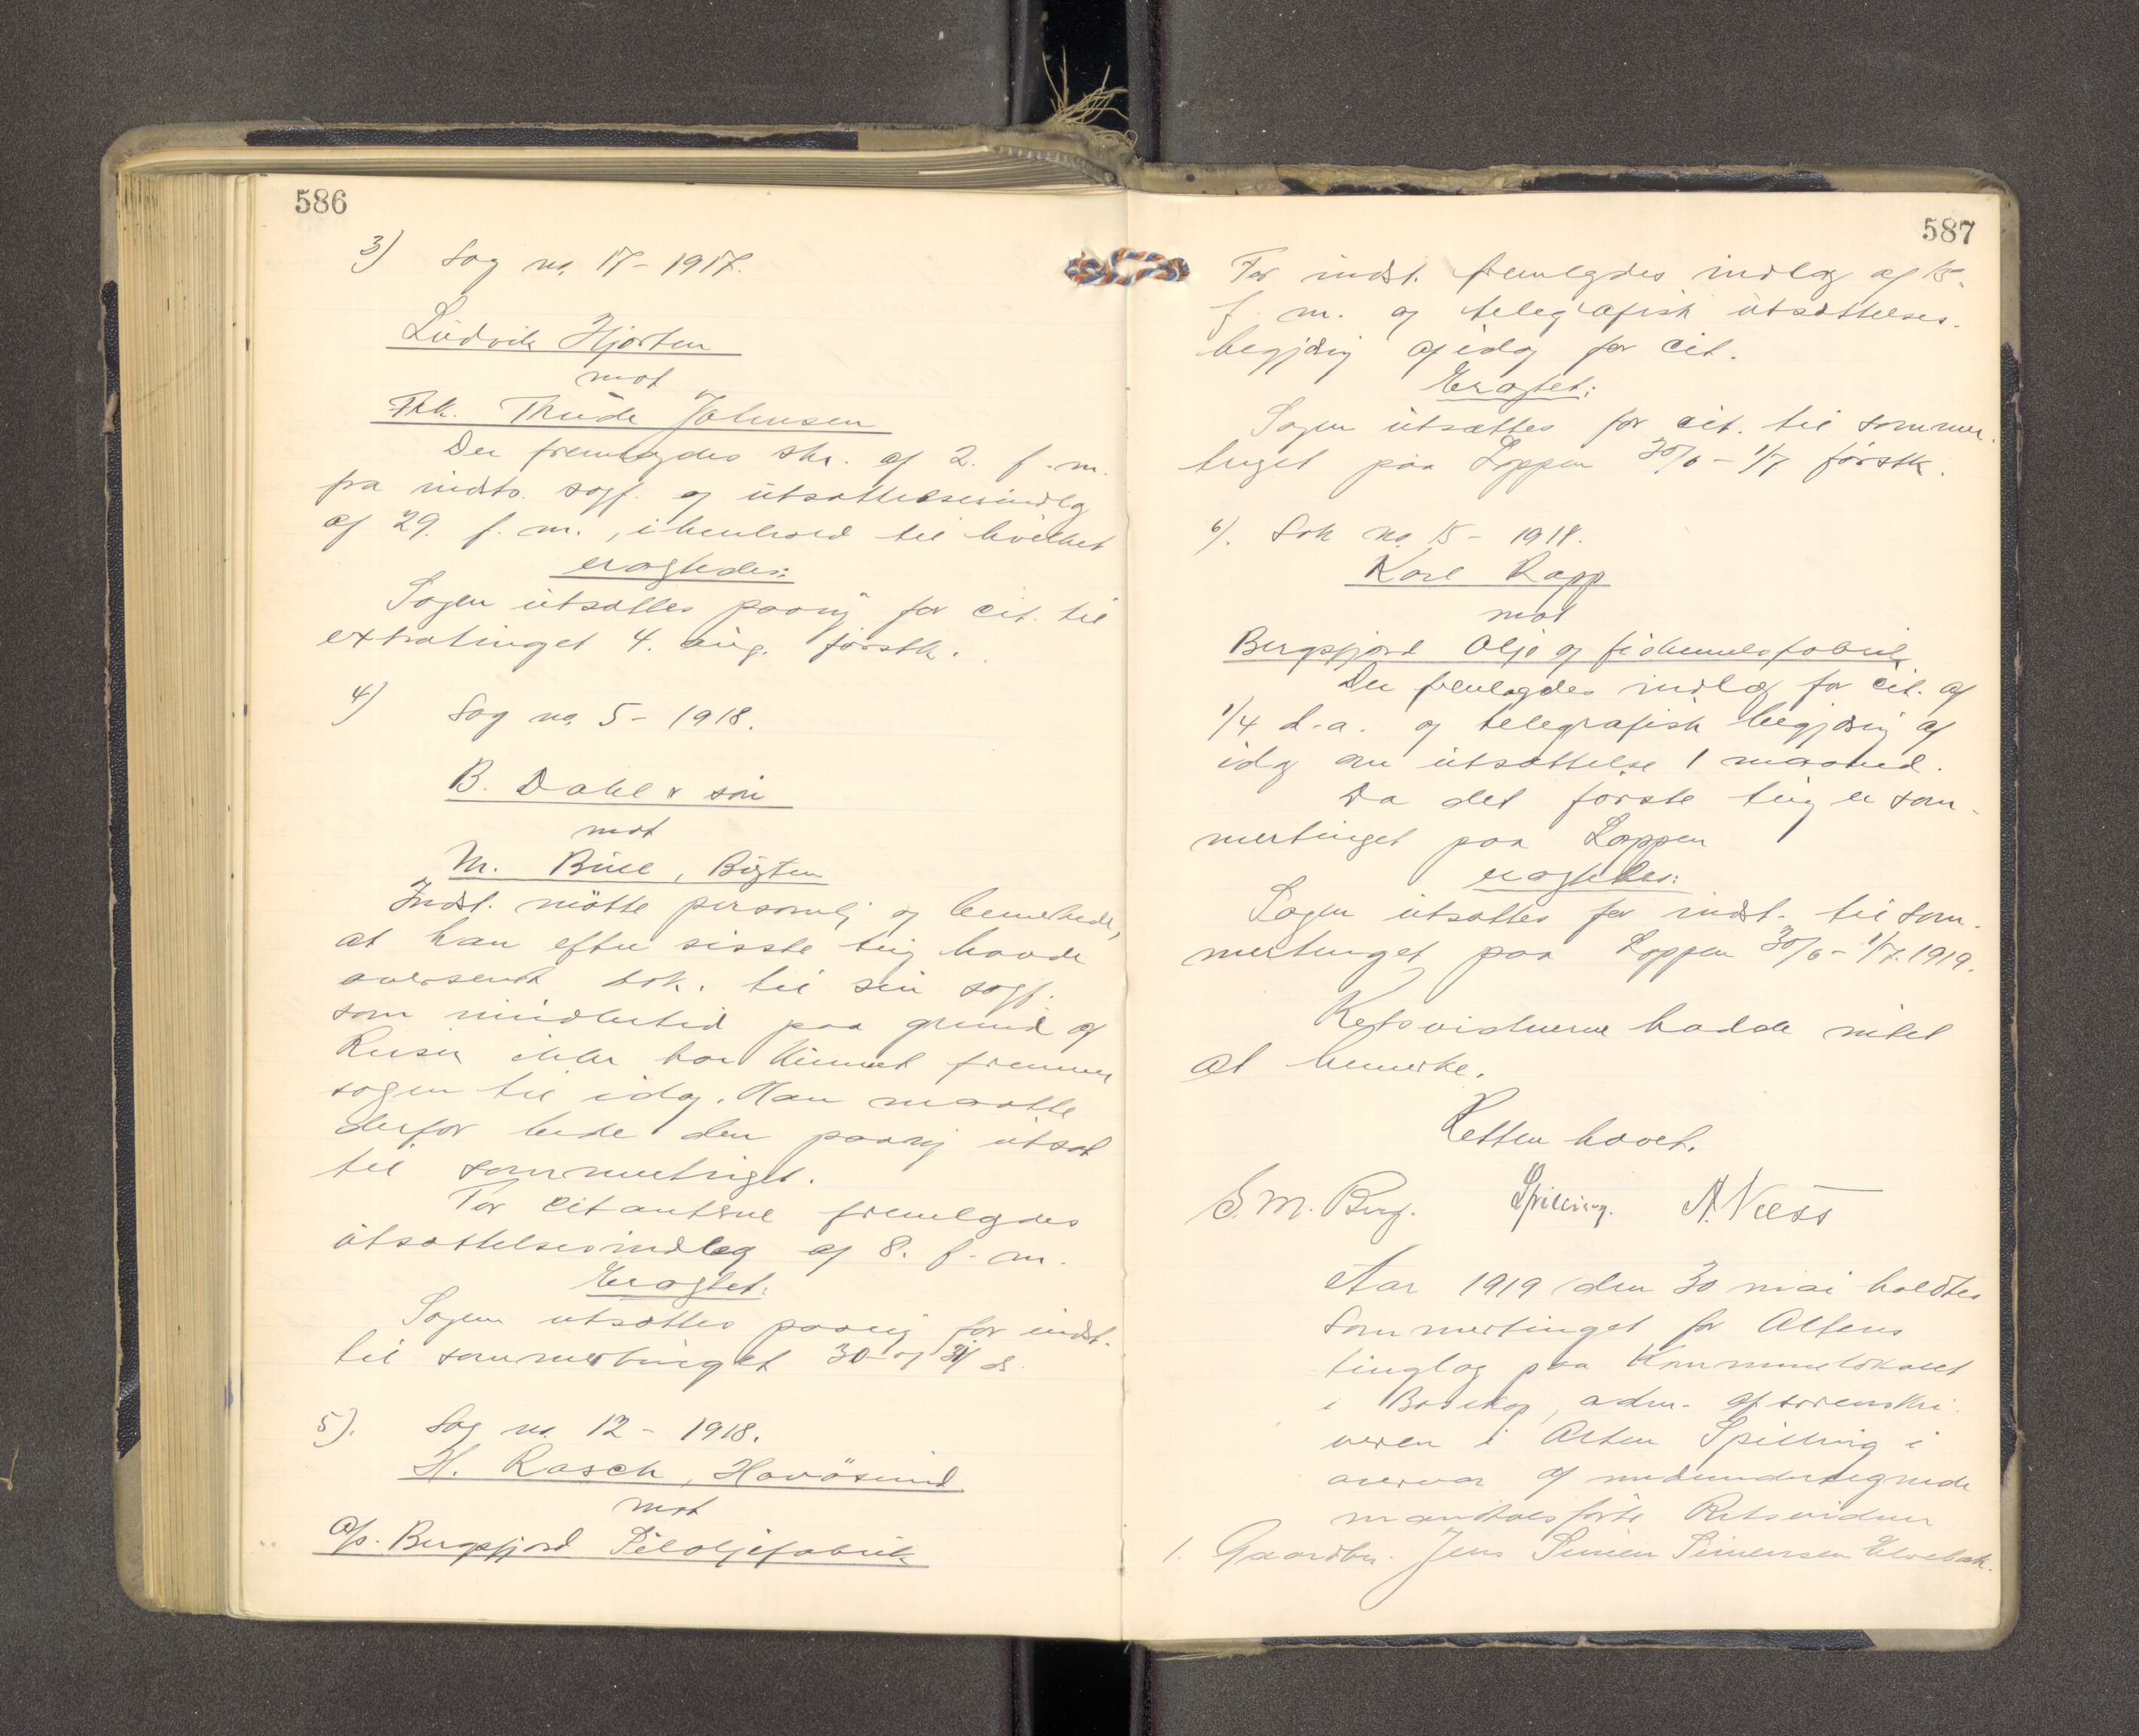 586
3) Sag no. 17 - 1917.
Ludvik Hjorten
mot
Frk. Thrude Johnsen
Der fremlagdes skr. af 2. f. m.
fra indst. sagf. og utsættelsesindlæg
af 29. f. m., i henhold til hvilket
eragtedes:
Sagen utsættes paany for cit. til
extratinget 4. aug. førstk.
4) Sag no. 5 - 1918.
B. Dahl & søn
mot
M. Bull, Bigten
Indst. møtte personlig og bemerkede,
at han efter sisste ting havde
oversendt dok. til sin sagf.
som imidlertid paa grund af
Reiser ikke har kunnet fremme
sagen til idag. Han maatte
derfor bede den paany utsat
til sommertinget.
For citanterne fremlagdes
utsættelsesindlæg af 8. f. m.
Eragtet:
Sagen utsættes paany for indst.
til sommertinget 30 og 31 ds.
5). Sag no. 12 - 1918.
H. Rasch, Havøsund
mot
A/s. Bergsfjord Sildoljefabrik
587
For indst. fremlagdes indlæg af 15.
f. m. og telegrafisk utsættelses-
begjæring af idag for cit.
Eragtet:
Sagen utsættes for cit. til sommer-
tinget paa Loppen 30/6 - 1/7 førstk.
6). Sak no. 15 - 1918.
Karl Rapp
mot
Bergsfjord Olje og fiskemelsfabrik
Der fremlagdes indlæg for cit. af
1/4 d. a. og telegrafisk begjæring af
idag om utsættelse 1 maaned.
Da det første ting er som-
mertinget paa Loppen
eragtedes:
Sagen utsættes for indst. til som-
mertinget paa Loppen 30/6 - 1/7. 1919.
Retsvidnerne hadde intet
at bemerke.
Retten hævet.
S. M. Berg. Spilling. A. Næss
Aar 1919 den 30 mai holdtes
Sommertinget for Altens
tinglag paa Kommunelokalet
i Bosekop, adm. af sorenskri-
veren i Alten Spilling i
overvær af medundertegnede
mandtalsførte Retsvidner
1. Gaardbr. Jens Simen Simensen Elvebak.